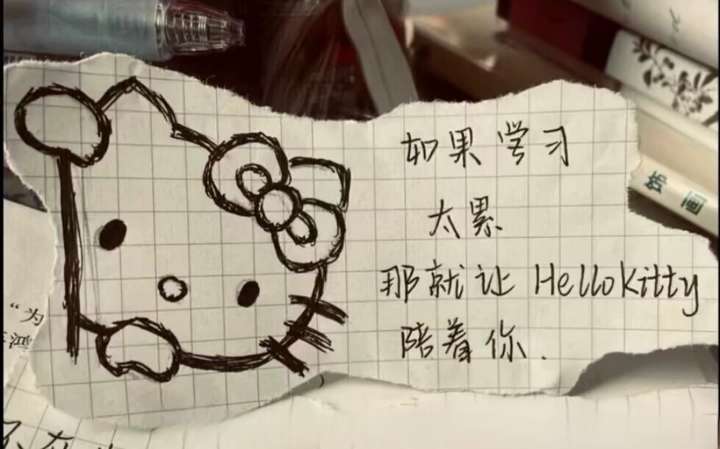 如果学习
太累
那就让HelloKitty
陪着你.
"为
饰画